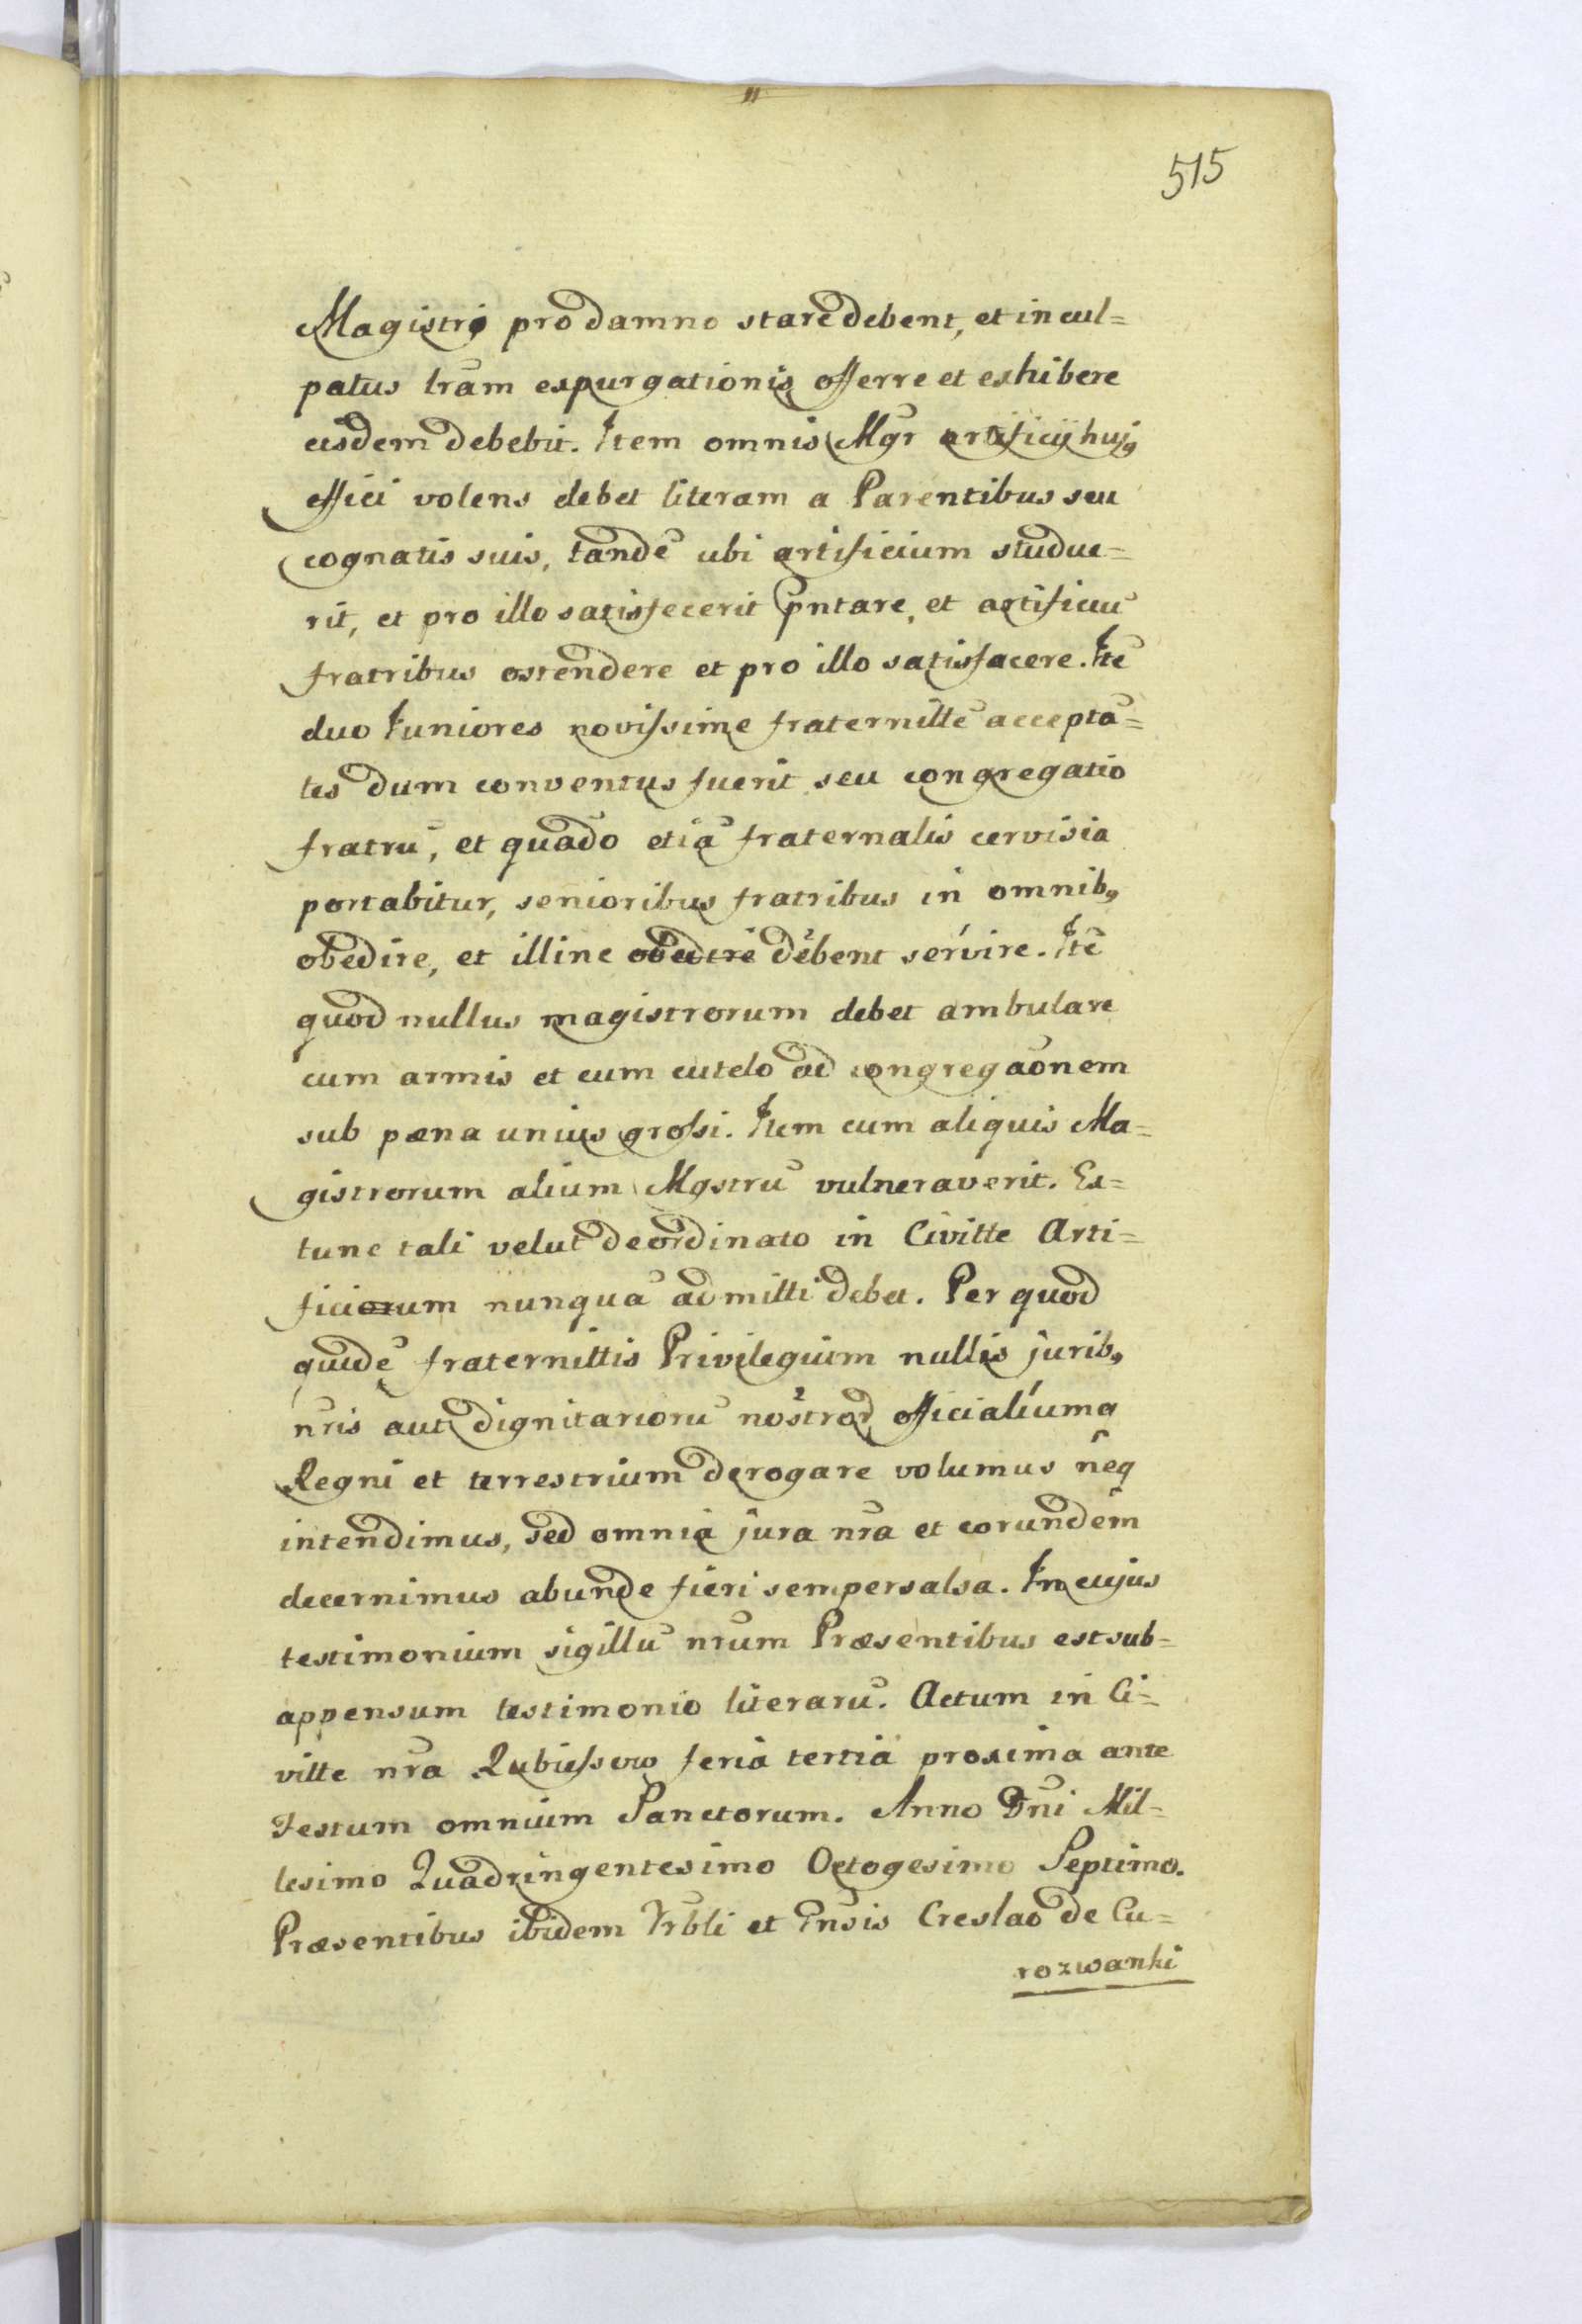 515
Magistri pro damno stare debent, et incul=
patus lram expurgationis offerre et exhibere
eisdem debebit. Item omnis Mgr artificij huj9
effici volens debet literam a Parentibus seu
cognatis suis, tandē ubi artificium studue=
rit, et pro illo satisfecerit pntare, et artificiū
fratribus ostendere et pro illo satisfacere. Itē
duo Iuniores novissime fraternitte accepta=
tes dum conventus fuerit seu congregatio
fratrū, et quādo etiā fraternalis cervisia
portabitur, senioribus fratribus in omnib9
obedire, et illinc obedire debent servire. Itē
quod nullus magistrorum debet ambulare
cum armis et cum cutelo ad congregaonem
sub pæna unius grossi. Item cum aliquis Ma=
gistrorum alium Mgstrū vulneraverit. Ex=
tunc tali velut deordinato in Civitte Arti=
ficiorum nunquā admitti debet. Per quod
quidē fraternittis Privilegium nullis jurib9
nris aut dignitariorū nostror officialiumq
Regni et terrestrium derogare volumus neq
intendimus, sed omnia jura nra et eorundem
decernimus abunde fieri semper salsa. In cujus
testimonium sigillū nrum Præsentibus est sub=
appensum testimonio literarū. Actum in Ci=
vitte nra Lubiessow feria tertia proxima ante
Festum omnium Sanctorum. Anno Dni Mil=
lesimo Quadringentesimo Octogesimo Septimo.
Præsentibus ibidem Vrbli et Gnsis Creslao de Cu=
rozwanki